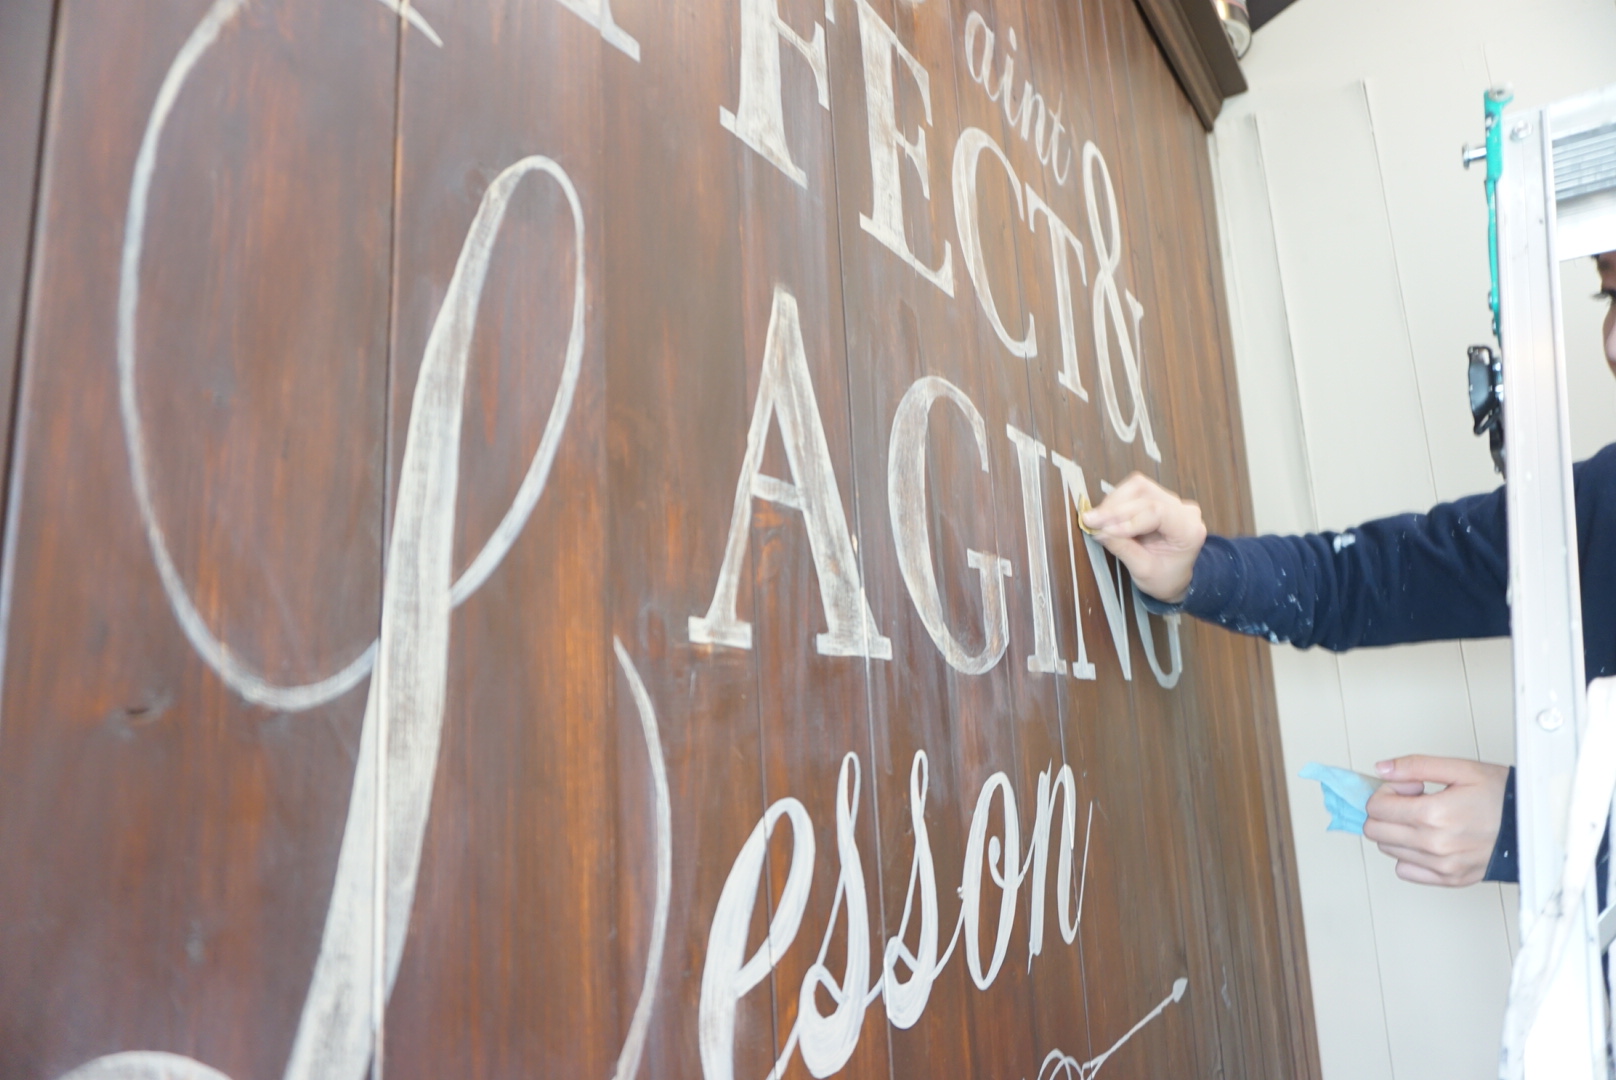 aint
FECT &
AGING
Lesson